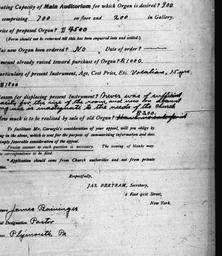 ating Capacity of Main Auditorium for which Organ is desired? 900
comprising 700 on floor and 200 in Gallery.
rice of proposed Organ? $4500
(Form should not be returned till this has been enquired into and settled.)
as some Organ been ordered? No Date of order?
mount already raised toward purchase of Organ? $1000.
articulars of present Instrument, Age, Cost Price, Etc. Vocalion, 15 yrs
$1500
eason for displacing present Instrument? Never was of sufficient
for the size of the room and now
is inadequate to the needs of the church
ow much is to be realized by sale of old Organ? $200.
To facilitate Mr. Carnegie's consideration of your appeal, will you oblige by
ing in the above, which is sent for the purpose of summarizing information and does
imply favorable consideration of the appeal.
Precise answer to each question is necessary. The issuing of blanks may
correspondence to be filed.
Application should come from Church authorities and not from private
Respectfully,
JAS. BERTRAM, Secretary,
2 East 91st Street,
New York.
James Raininger
Pastor
Plymouth Pa